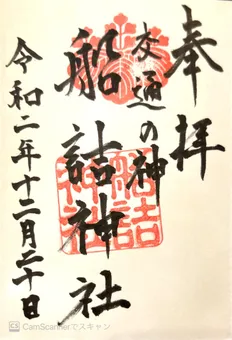 奉拝
交通の神
船詰神社
令和二年十二月二十日
船詰神社
CS CamScannerでスキャン